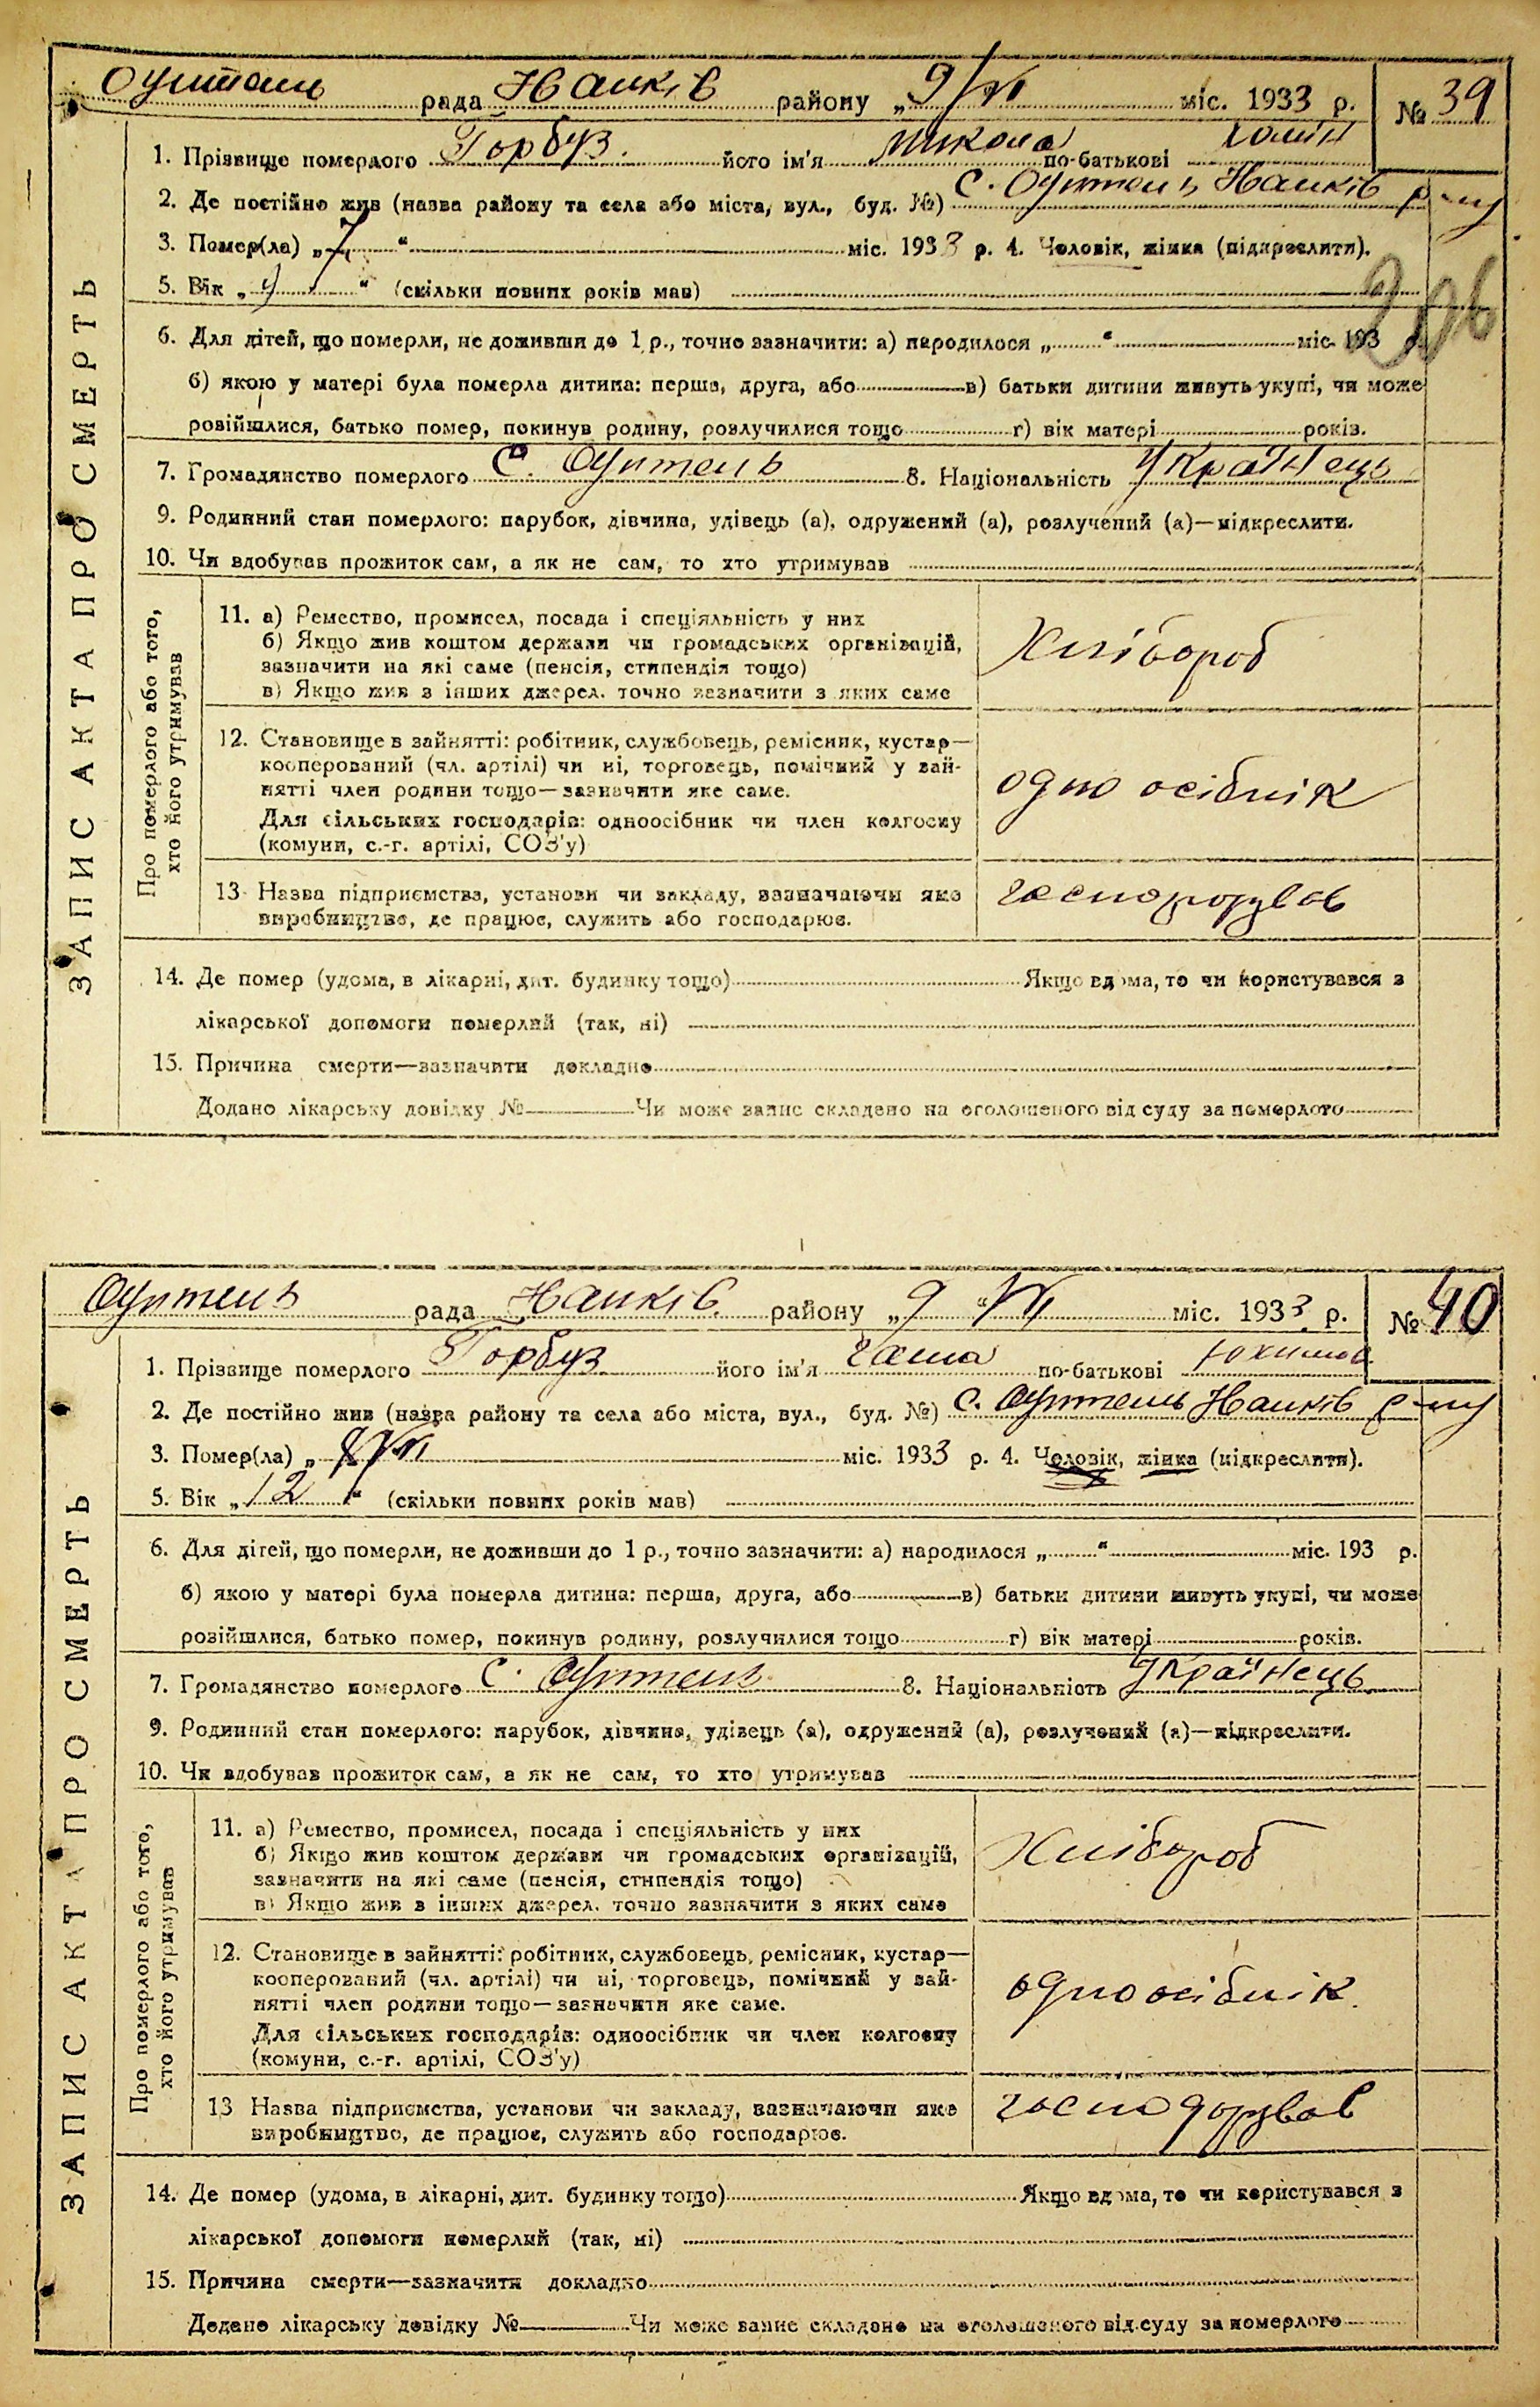 рада Чапків району „9/VI міс. 1933 р. № 39
1. Прізвище померлого Горбуз його ім'я Микола по-батькові
2. Де постійно жив (назва району та села або міста, вул., буд. №) с. р-ну
3. Помер(ла) „7 “ міс. 1933 р. 4. Чоловік, жінка (підкреслити).
5. Вік „ “ (скільки повних років мав)
206
6. Для дітей, що померли, не доживши до 1 р., точно зазначити: а) народилося „ “ міс. 193 р.
б) якою у матері була померла дитина: перша, друга, або в) батьки дитини живуть укупі, чи може
розійшлися, батько помер, покинув родину, розлучилися тощо г) вік матері років.
7. Громадянство померлого с. 8. Національність Українець
9. Родинний стан померлого: парубок, дівчина, удівець (а), одружений (а), розлучений (а)—підкреслити.
10. Чи здобував прожиток сам, а як не сам, то хто утримував
ЗАПИС АКТА ПРО СМЕРТЬ
Про померлого або того,
хто його утримував
11. а) Ремество, промисел, посада і спеціяльність у них
б) Якщо жив коштом держави чи громадських організацій,
зазначити на які саме (пенсія, стипендія тощо)
в) Якщо жив з інших джерел. точно зазначити з яких саме
Хлібороб
12. Становище в зайнятті: робітник, службовець, ремісник, кустар—
кооперований (чл. артілі) чи ні, торговець, помічний у зай-
нятті член родини тощо—зазначити яке саме.
Для сільських господарів: одноосібник чи член колгоспу
(комуни, с.-г. артілі, СОЗ'у)
одно осібнік
13 Назва підприємства, установи чи закладу, зазначаючи яке
виробництво, де працює, служить або господарює.
14. Де помер (удома, в лікарні, дит. будинку тощо) Якщо вдома, то чи користувався з
лікарської допомоги померлий (так, ні)
15. Причина смерти—зазначити докладно
Додано лікарську довідку № Чи може запис складено на оголошеного від суду за померлого
рада району „9 “ VI міс. 1933 р. № 40
1. Прізвище померлого Горбуз його ім'я по-батькові
2. Де постійно жив (назва району та села або міста, вул., буд. №) с. р-ну
3. Помер(ла) „ міс. 1933 р. 4. Чоловік, жінка (підкреслити).
5. Вік „12 “ (скільки повних років мав)
6. Для дітей, що померли, не доживши до 1 р., точно зазначити: а) народилося „ “ міс. 193 р.
б) якою у матері була померла дитина: перша, друга, або в) батьки дитини живуть укупі, чи може
розійшлися, батько помер, покинув родину, розлучилися тощо г) вік матері років.
7. Громадянство померлого с. 8. Національність Українець
9. Родинний стан померлого: парубок, дівчина, удівець (а), одружений (а), розлучений (а)—підкреслити.
10. Чи здобував прожиток сам, а як не сам, то хто утримував
ЗАПИС АКТА ПРО СМЕРТЬ
Про померлого або того,
хто його утримував
11. а) Ремество, промисел, посада і спеціяльність у них
б) Якщо жив коштом держави чи громадських організацій,
зазначити на які саме (пенсія, стипендія тощо)
в) Якщо жив з інших джерел. точно зазначити з яких саме
Хлібороб
12. Становище в зайнятті: робітник, службовець, ремісник, кустар—
кооперований (чл. артілі) чи ні, торговець, помічний у зай-
нятті член родини тощо—зазначити яке саме.
Для сільських господарів: одноосібник чи член колгоспу
(комуни, с.-г. артілі, СОЗ'у)
одноосібнік
13 Назва підприємства, установи чи закладу, зазначаючи яке
виробництво, де працює, служить або господарює.
14. Де помер (удома, в лікарні, дит. будинку тощо) Якщо вдома, то чи користувався з
лікарської допомоги померлий (так, ні)
15. Причина смерти—зазначити докладно
Додано лікарську довідку № Чи може запис складено на оголошеного від суду за померлого